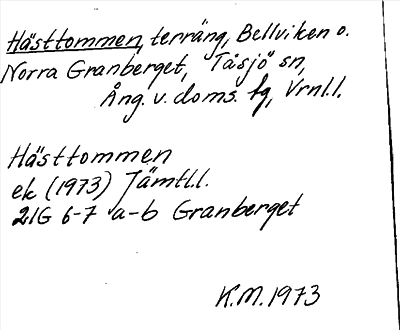 Hästtommen, terräng, Bellviken o.
Norra Granberget, Tåsjö sn,
Ång. v. doms. fg, Vrnl.l.
Hästtommen
ek (1973) Jämtl.l.
21G 6-7 a-b Granberget
K.M. 1973